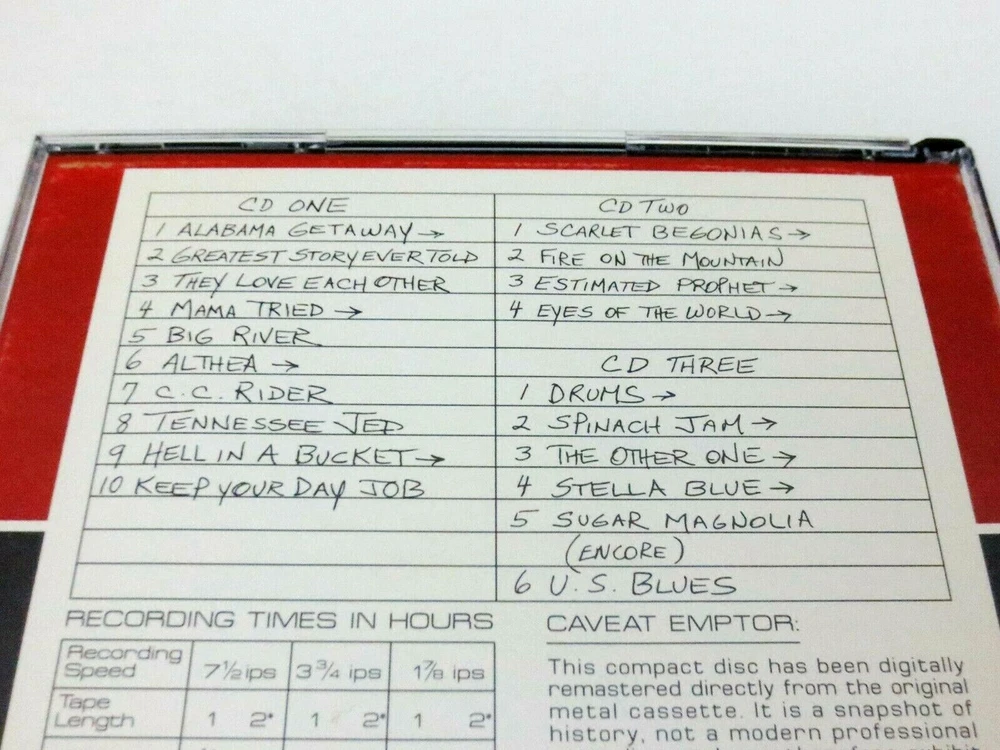 CD ONE
1 ALABAMA GETAWAY→
2 GREATEST STORY EVER TOLD
3 THEY LOVE EACH OTHER
4 MAMA TRIED →
5 BIG RIVER
6 ALTHEA →
7 C.C. RIDER
8 TENNESSEE JED
9 HELL IN A BUCKET→
10 KEEP YOUR DAY JOB
CD TWO
1 SCARLET BEGONIAS→
2 FIRE ON THE MOUNTAIN
3 ESTIMATED PROPHET→
4 EYES OF THE WORLD→
CD THREE
1 DRUMS→
2 SPINACH JAM→
3 THE OTHER ONE→
4 STELLA BLUE→
5 SUGAR MAGNOLIA
(ENCORE)
6 U.S. BLUES
RECORDING TIMES IN HOURS
Recording Speed 7½ ips 3¾ ips 1⅞ ips
Tape Length 1 2* 1 2* 1 2*
CAVEAT EMPTOR:
This compact disc has been digitally
remastered directly from the original
metal cassette. It is a snapshot of
history, not a modern professional